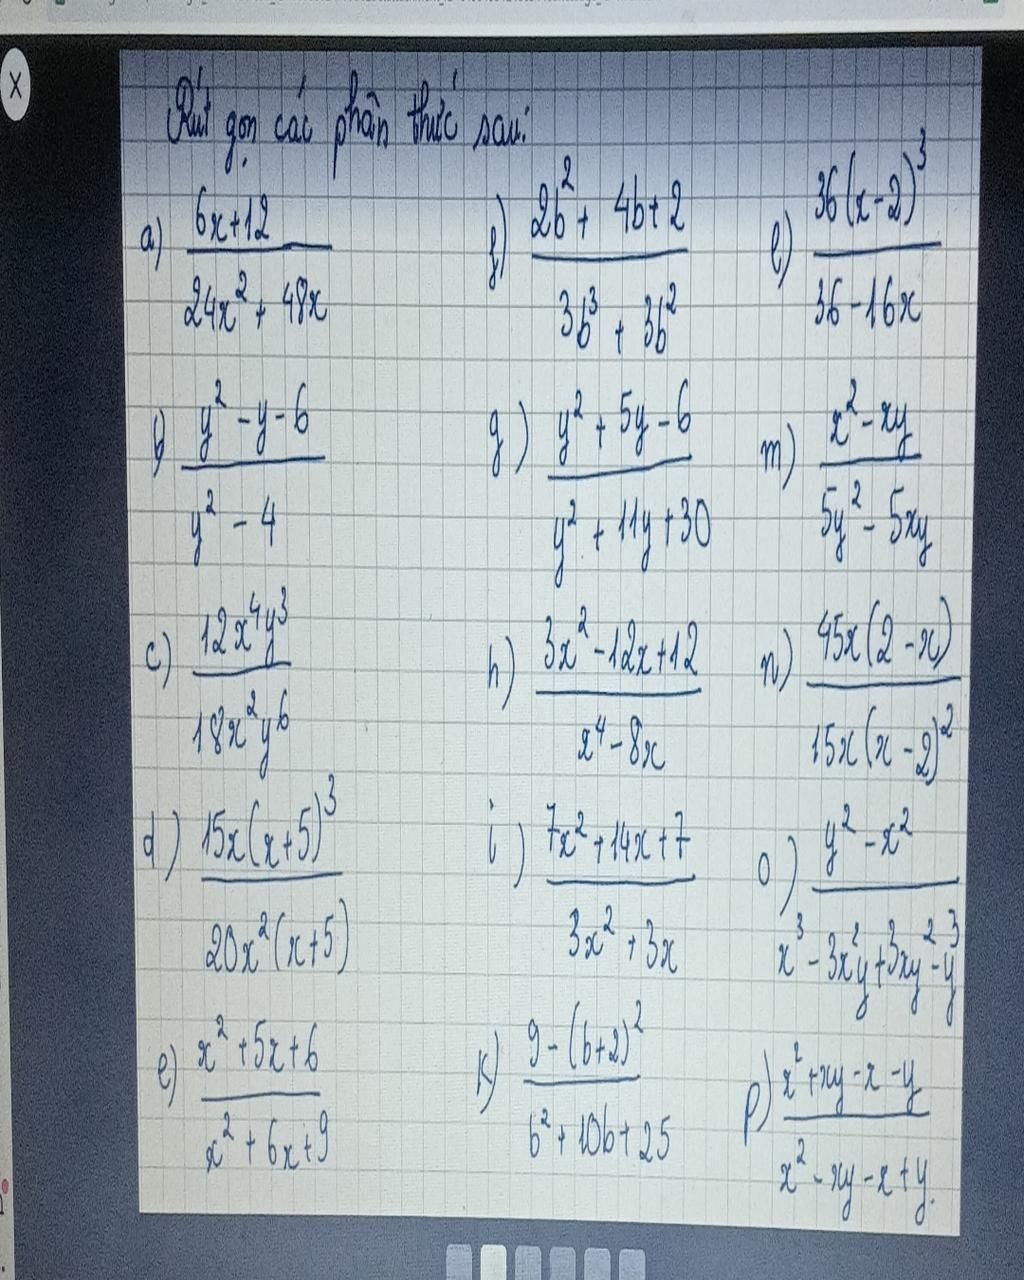 Rút gọn các phân thức sau:
a) (6x+12)/(24x² + 48x)
f) (2b² + 4b+2)/(3b³ + 3b²)
l) 36(x-2)³/(36-16x)
b) (y² - y - 6)/(y² - 4)
g) (y² + 5y - 6)/(y² + 11y + 30)
m) (x² - xy)/(5y² - 5xy)
c) 12x⁴y³/18x²y⁶
h) (3x² - 12x + 12)/(x⁴ - 8x)
n) 45x(2-x)/15x(x-2)²
d) 15x(x+5)³/20x²(x+5)
i) (7x² + 14x + 7)/(3x² + 3x)
o) (y² - x²)/(x³ - 3x²y + 3xy² - y³)
e) (x² + 5x + 6)/(x² + 6x + 9)
k) (9 - (b+2)²)/(b² + 10b + 25)
p) (x² + xy - x - y)/(x² - xy - x + y).